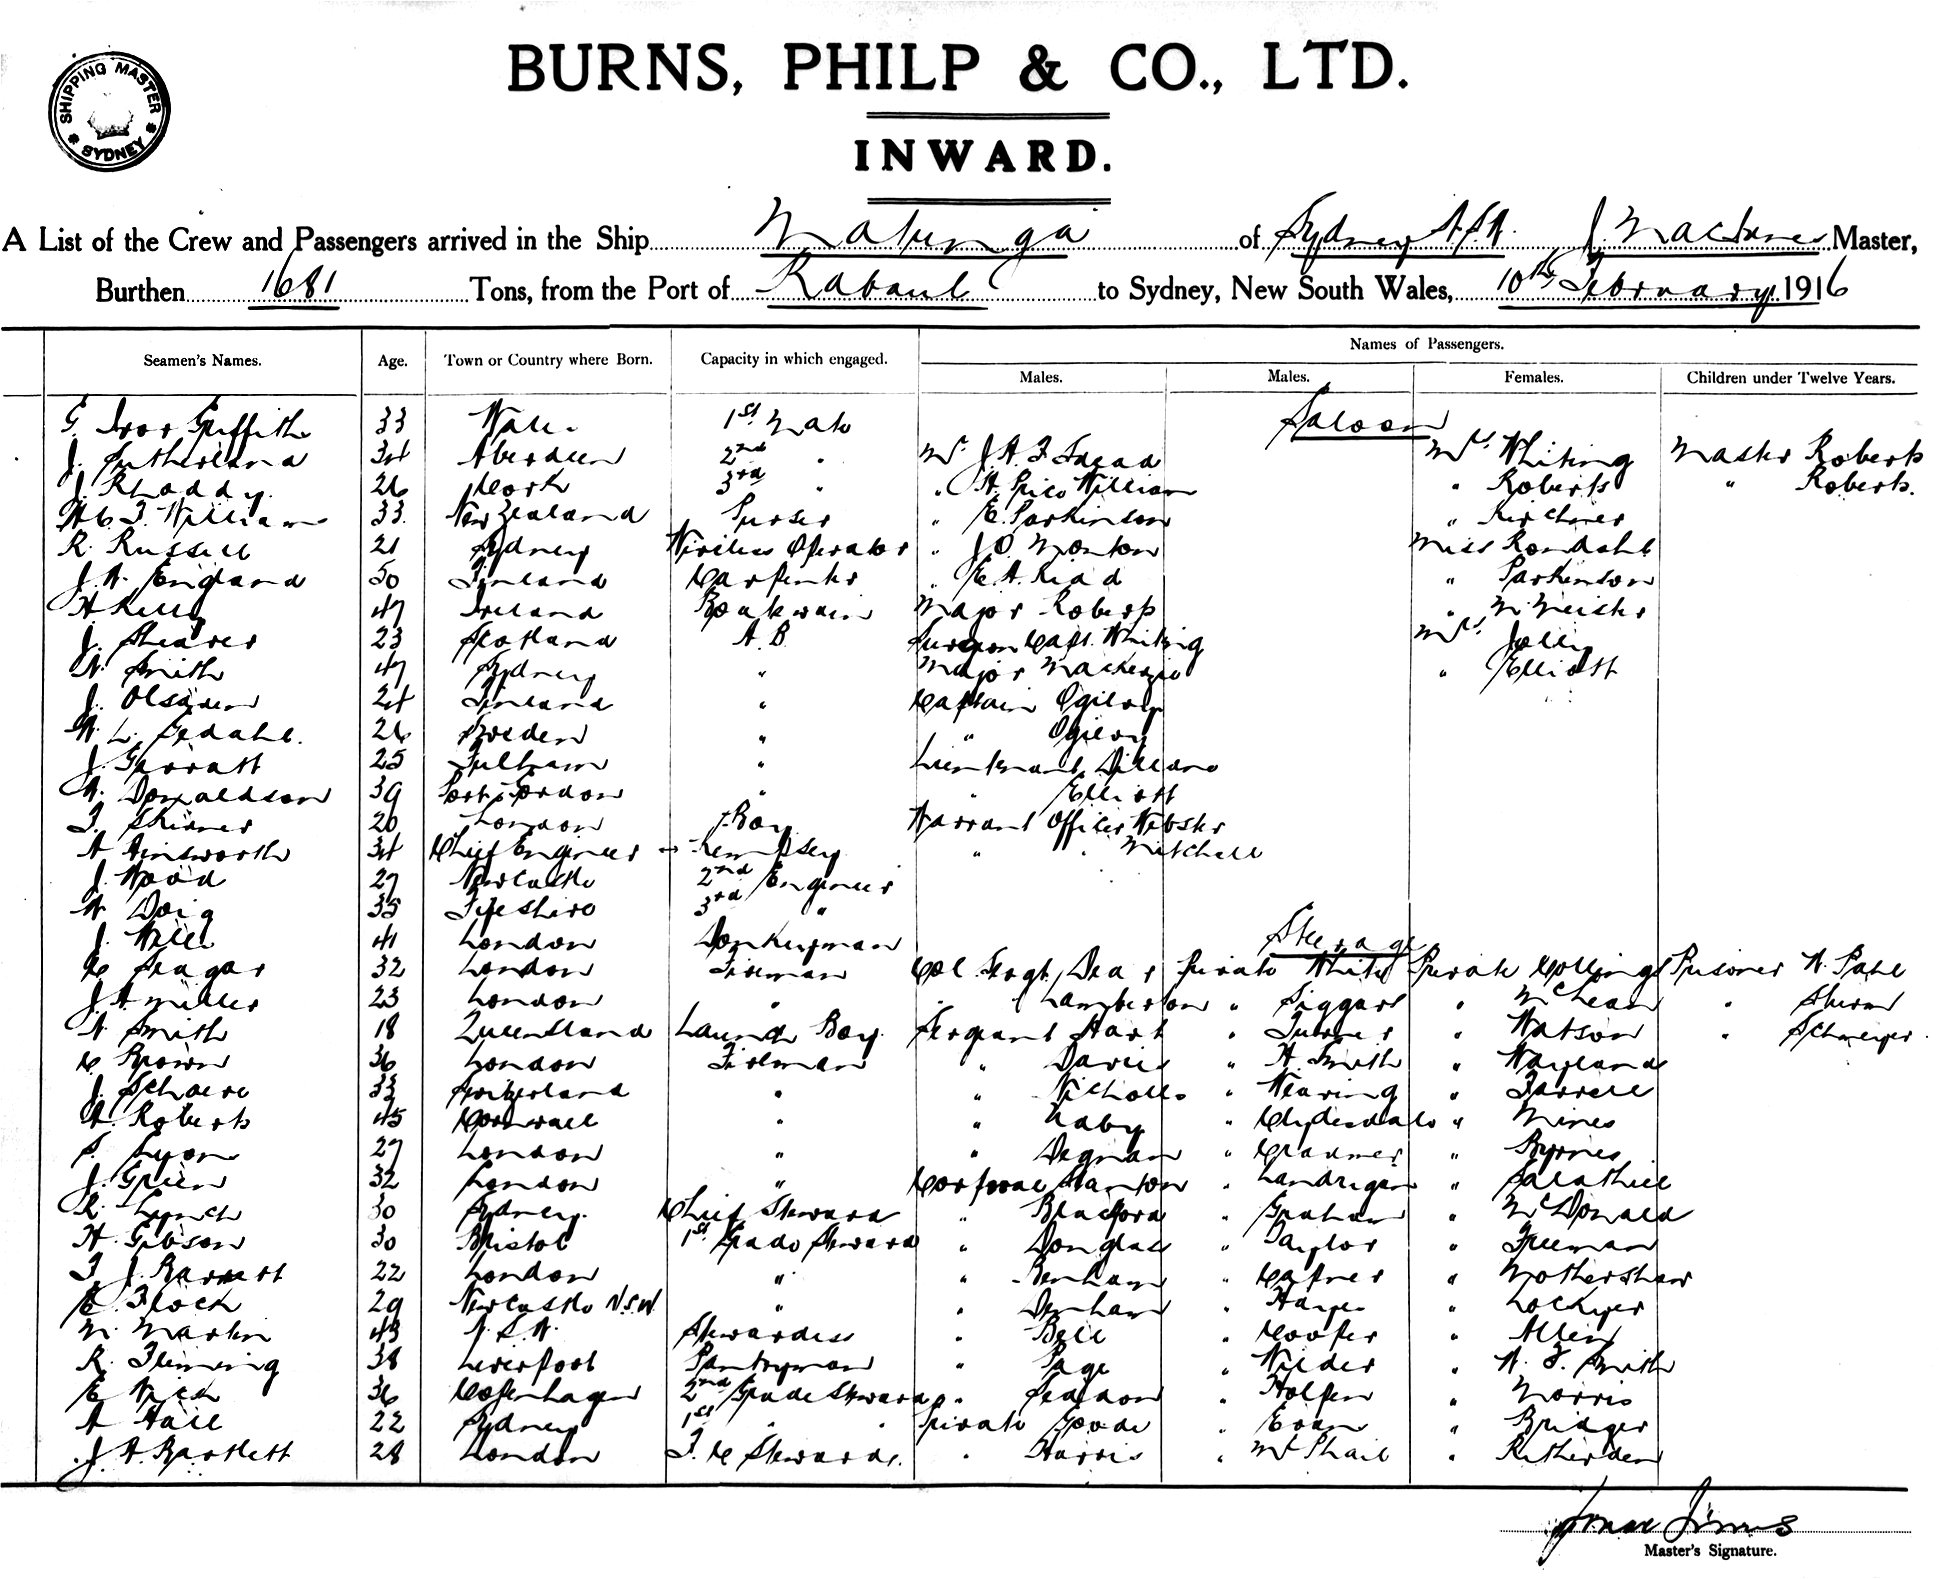 BURNS, PHILP & CO., LTD.
INWARD.
SHIPPING MASTER
SYDNEY
A List of the Crew and Passengers arrived in the Ship Matunga of Sydney N.S.W. J. Master,
Burthen 1681 Tons, from the Port of Rabaul to Sydney, New South Wales, 10th February 1916
Names of Passengers.
Seamen's Names. Age. Town or Country where Born. Capacity in which engaged. Males. Males. Females. Children under Twelve Years.
G. Ivor Griffiths 33 Wales 1st Mate Saloon
J. Sutherland 34 Aberdeen 2nd " Mr. J.A.F. Mrs. Whiting Master Roberts
J. 26 Cork 3rd " " Williams " Roberts " Roberts.
33 New Zealand Purser " E. Parkinson " Kirchner
R. Russell 21 Sydney Wireless Operator " J.O. Monton Miss Rondahl
J.A. England 50 Finland Carpenter " E.A. " Parkinson
H Kelly 47 Ireland Boatswain Major Roberts "
J. Shearer 23 Scotland A.B. Surgeon Capt. Whiting Mrs. Jolly
A. Smith 47 Sydney " Major Mackenzie " Elliott
J. 24 Finland " Captain Ogilvy
26 Sweden " " Ogilvy
J. Garratt 25 Fulham " Lieutenant
A. Donaldson 39 Port Gordon " " Elliott
F. Skinner 20 London Boy Warrant Officer Webster
A Ainsworth 34 Chief Engineer Kempsey " " Mitchell
J. Wood 27 Newcastle 2nd Engineer
A. Doig 35 Fifeshire 3rd "
J. 41 London Donkeyman Steerage
C Seagar 32 London Fireman Col. Sergt. Dear Private White Private Collings Prisoner
J.A. Miller 23 London " " Lamberton " Siggars " McLean "
A. Smith 18 Queensland Launch Boy Sergeant Hart " Turner " Watson "
C. Brown 36 London Fireman " Davis " A. Smith " Wayland
J. 33 Switzerland " " Nicholls " Wearing " Farrell
A. Roberts 45 Cornwall " " " Clydesdale " Mines
S. Lyon 27 London " " Degnan " " Byrnes
J. Green 32 London " Corporal Stanton " Landrigan " Salathiel
R. Lynch 30 Sydney. Chief Steward " " Graham " McDonald
H. Gibson 30 Bristol 1st Grade Steward " Douglas " Taylor " Freeman
F. J. Barrett 22 London " " Benham " " Mothershaw
E. Flock 29 Newcastle N.S.W. " " Denham " " Lockyer
M. Martin 43 N.S.W. Stewardess " Bell " Cooper " Allen
R. Fleming 38 Liverpool Pantryman " Page " Wilder " Smith
E 36 Copenhagen 2nd Grade Steward " Seddon " " Morris
A Hall 22 Sydney 1st " " Private Goode " Evans " Bridger
J.A. Bartlett 28 London Steward. " Harris " McPhail "
Master's Signature.